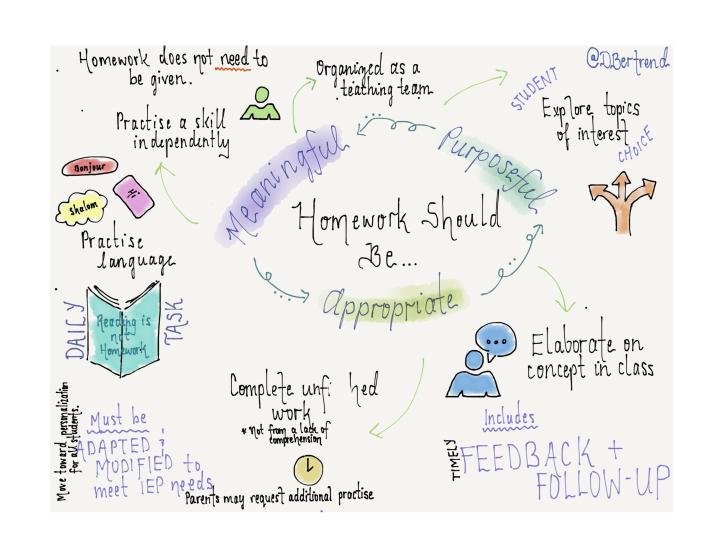 Homework does not need to
be given.
Organized as a
teaching team
@DBertrend
STUDENT
Explore topics
of interest
CHOICE
Practise a skill
independently
Meaningful
Purposeful
Bonjour
Shalom
Homework Should
Be...
Practise
language
Appropriate
DAILY
Reading is
not
Homework
TASK
Elaborate on
concept in class
Complete unfi hed
work
* Not from a lack of
comprehension
Includes
TIMELY
FEEDBACK +
FOLLOW-UP
Move toward personalization
for all students.
Must be
ADAPTED &
MODIFIED to
meet IEP needs
Parents may request additional practise